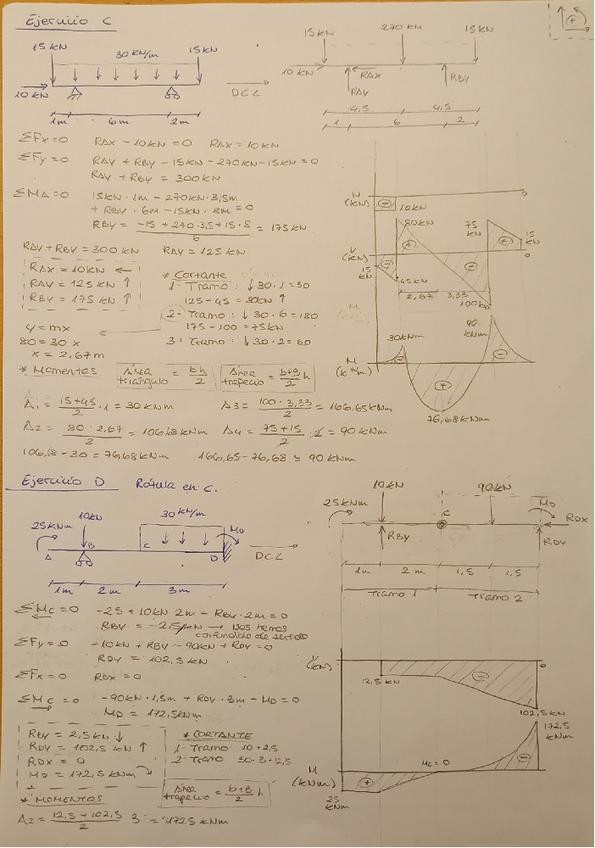 Ejercicio C
15 kN
30 kN/m
15 kN
10 kN
DCL
1m
6m
2m
15 kN
270 kN
15 kN
10 kN
RAX
RAY
RBY
4,5
4,5
1
6
2
ΣFx=0 RAX - 10kN = 0 RAX = 10kN
ΣFy=0 RAY + RBY - 15kN - 270kN - 15kN = 0
RAY + RBY = 300kN
ΣMA=0 15kN · 1m - 270kN · 3,5m
+ RBY · 6m - 15kN · 8m = 0
RBY = -15 + 270·3,5 + 15·8 / 6 = 175 kN
RAY + RBY = 300 kN RAY = 125 kN
RAX = 10kN ←
RAY = 125 kN ↑
RBY = 175 kN ↑
* Cortante
1º Tramo: ↓ 30·1 = 30
125 - 45 = 80kN ↑
2º Tramo: ↓ 30·6 = 180
175 - 100 = 75kN
3º Tramo: ↓ 30·2 = 60
y = mx
80 = 30 x
x = 2,67 m
N (kN)
10kN
V (kN)
15 kN
45kN
80kN
2,67
3,33
100kN
75 kN
15 kN
M (kNm)
30kNm
90 kNm
76,68 kNm
* Momentos
Área triángulo = bh/2
Área trapecio = b+B/2 h
A1 = 15+45/2 · 1 = 30 kNm
A3 = 100·3,33/2 = 166,65 kNm
A2 = 80·2,67/2 = 106,68 kNm
A4 = 75+15/2 · 2 = 90 kNm
106,68 - 30 = 76,68 kNm
166,65 - 76,68 ≈ 90 kNm
Ejercicio D Rótula en C.
25kNm
10kN
30 kN/m
MD
A
B
C
D
DCL
1m
2m
3m
25kNm
10kN
C
90kN
MD
RDX
RBY
RDY
1m
2m
1,5
1,5
Tramo 1
Tramo 2
ΣMC=0 -25 + 10kN 2m - RBY · 2m = 0
RBY = -2,5kN → Nos hemos
confundido de sentido
ΣFy=0 -10kN + RBY - 90kN + RDY = 0
RDY = 102,5 kN
ΣFx=0 RDX = 0
ΣMC=0 -90kN · 1,5m + RDY · 3m - MD = 0
MD = 172,5kNm
RBY = 2,5kN ↓
RDY = 102,5 kN ↑
RDX = 0
MD = 172,5kNm
* CORTANTE
1º Tramo 10+2,5
2º Tramo 30·3+12,5
* MOMENTOS
Área trapecio = b+B/2 h
A2 = 12,5+102,5/2 3 = 172,5 kNm
V (kN)
12,5 kN
102,5 kN
M (kNm)
MC=0
172,5 kNm
25 kNm